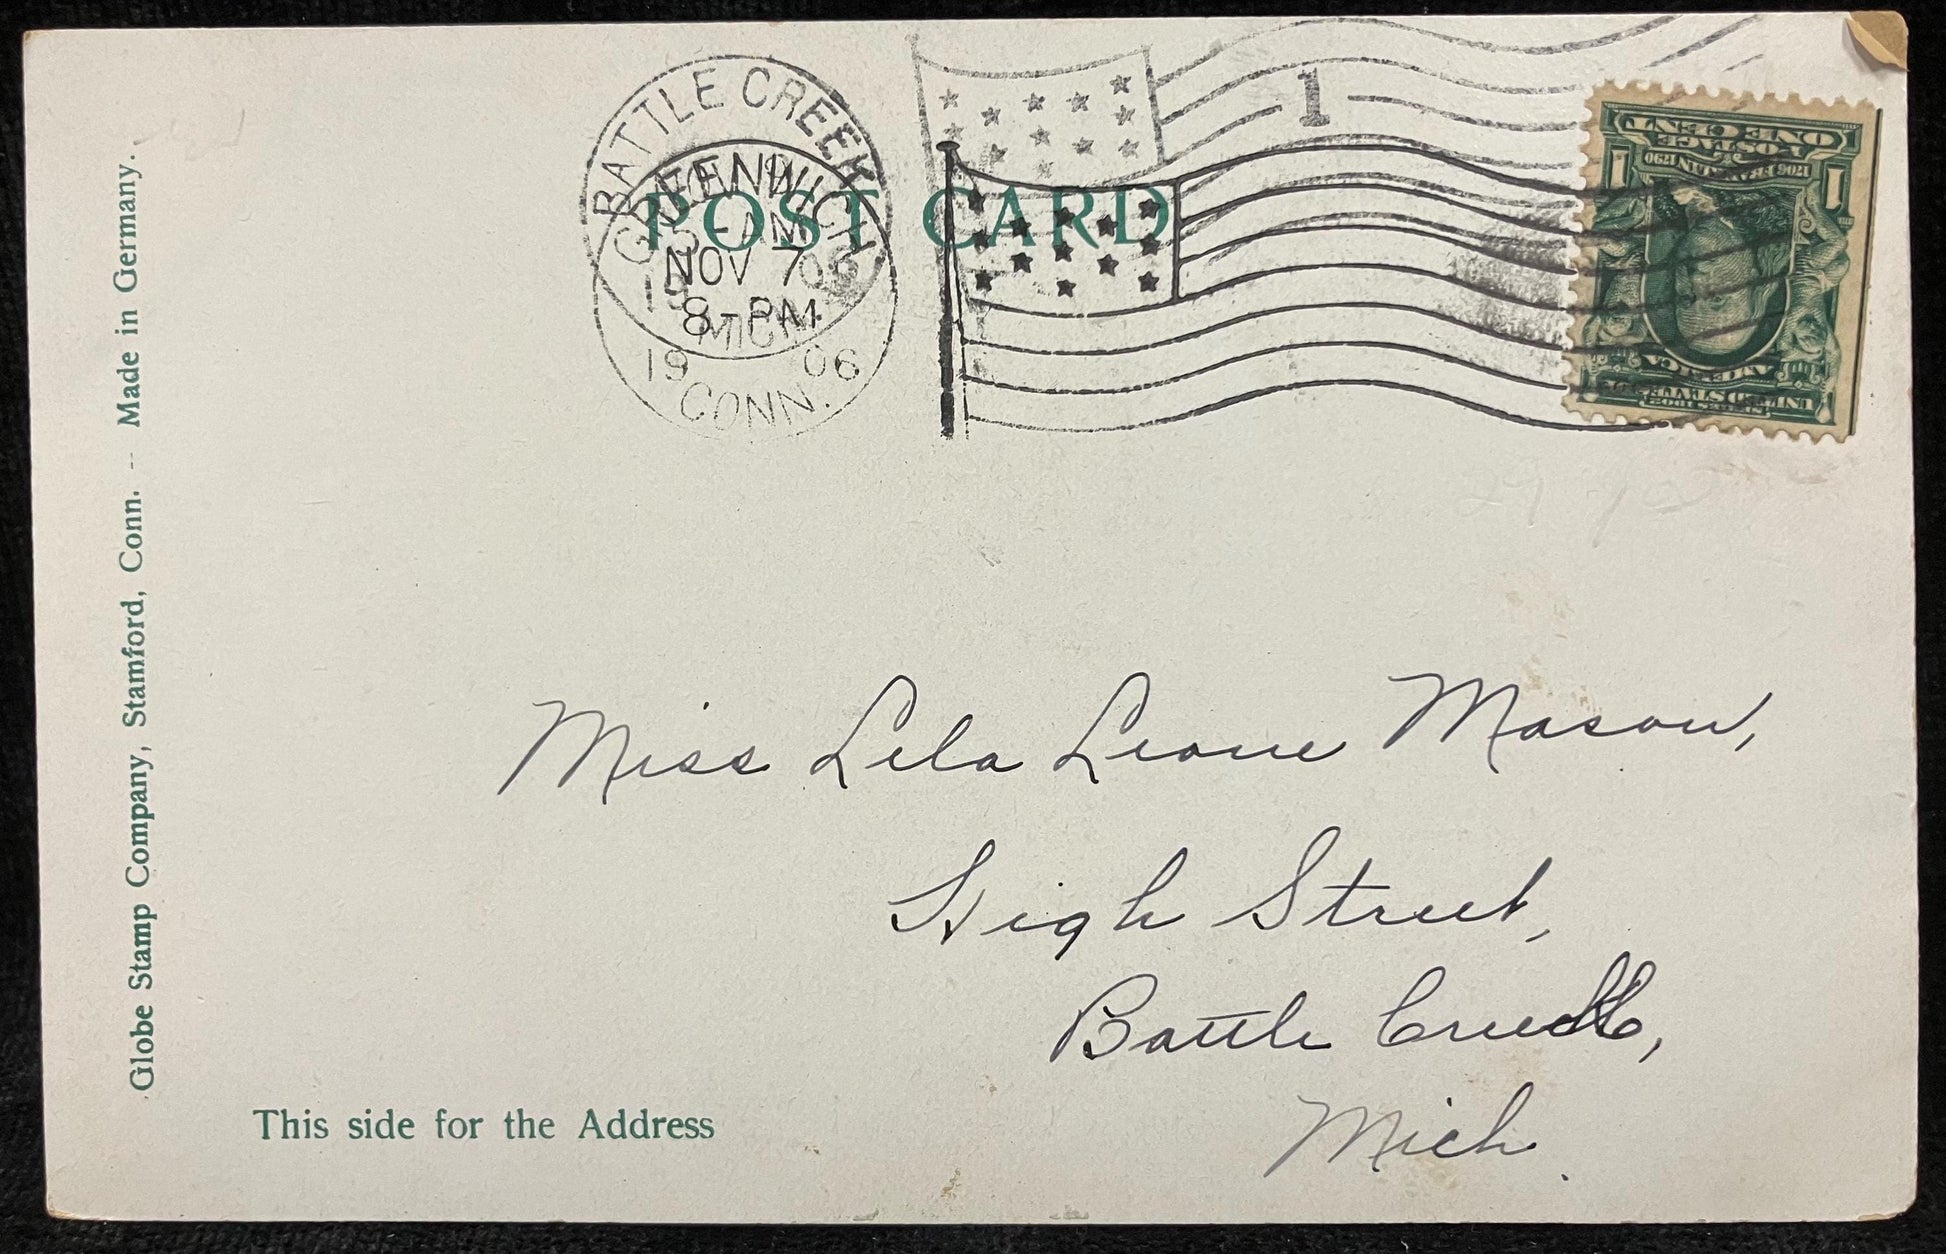 BATTLE CREEK
GREENWICH
NOV 7
8-PM
MICH.
19 06
CONN.
1
POST CARD
ONE CENT
POSTAGE
1706 FRANKLIN 1790
1 1
UNITED STATES
AMERICA
SERIES 1902
Globe Stamp Company, Stamford, Conn. -- Made in Germany.
Miss Lela Leone Mason,
High Street,
Battle Creek,
Mich.
This side for the Address